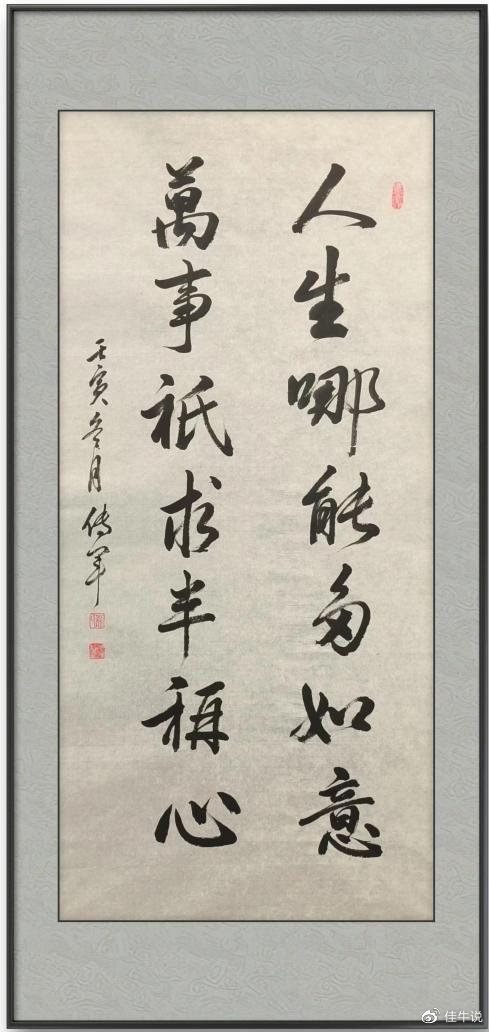 人生哪能多如意
萬事祇求半稱心
壬寅冬月傳軍
佳牛说